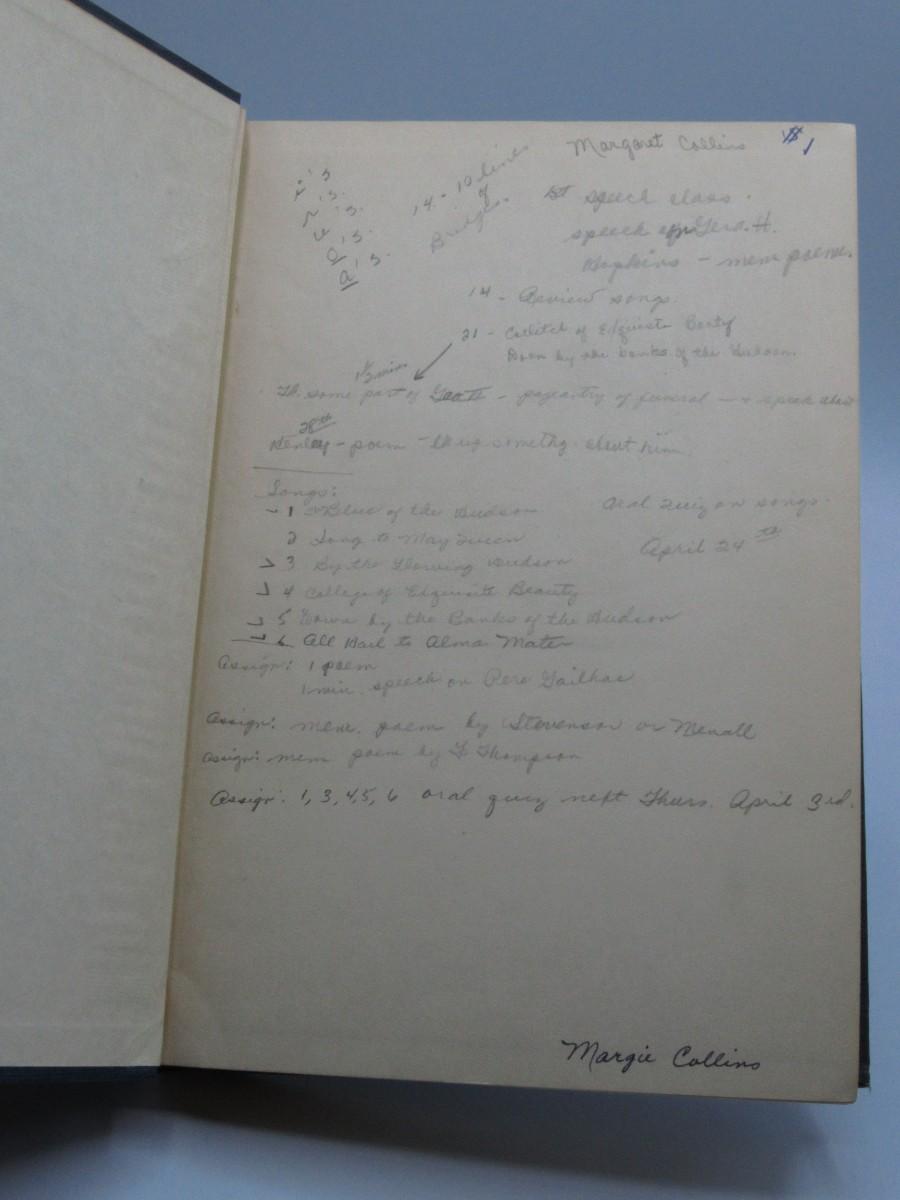 Margaret Collins
$1
i's
r's.
e's.
o's.
a's.
14 - 10 lines
of
Bridges.
1st speech class.
speech on Gerd. H.
Hopkins - mem poem.
14 - Review songs.
21 - of Exquisite Beauty
Down by the banks of the Hudson.
1/3 min.
Th. some part of - pageantry of funeral - + speak about
28th
Henley - poem - about him.
Songs:
1 Blue of the Hudson
2 Song to May Queen
3 By the Flowing Hudson
4 College of Exquisite Beauty
5 Down by the Banks of the Hudson
6 All Hail to Alma Mater
Oral Quiz on songs.
April 24th
Assign: 1 poem
1 min. speech on Pere Gailhac
Assign: mem. poem by Stevenson or
Assign: mem poem by F Thompson
Assign: 1, 3, 4, 5, 6 oral quiz next Thurs. April 3rd.
Margie Collins